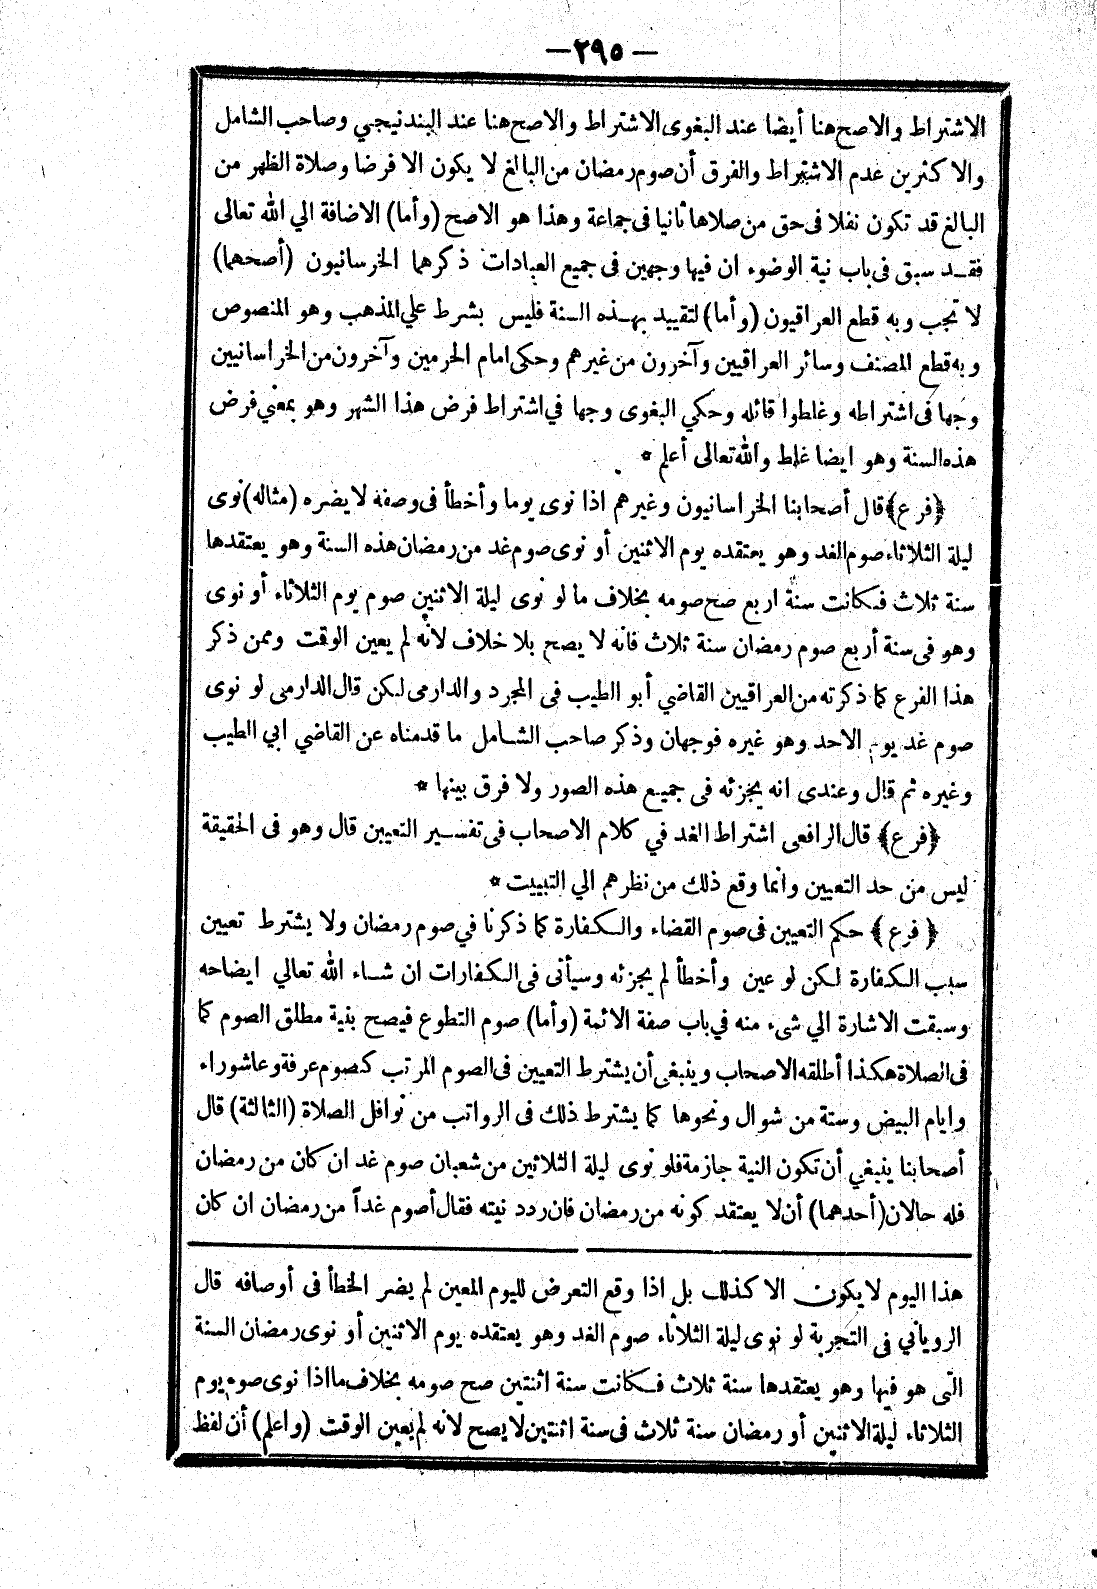 — ٢٩٥ —
الاشتراط والاصح هنا أيضا عند البغوى الاشتراط والاصح هنا عند البندنيجي وصاحب الشامل
والا كثرين عدم الاشتراط والفرق أن صوم رمضان من البالغ لا يكون الا فرضا وصلاة الظهر من
البالغ قد تكون نفلا فى حق من صلاها ثانيا فى جماعة وهذا هو الاصح (وأما) الاضافة الي الله تعالى
فقد سبق فى باب نية الوضوء ان فيها وجهين فى جميع العبادات ذكرهما الخرسانيون (أصحهما)
لا تجب وبه قطع العراقيون (وأما) لتقييد بهذه السنة فليس بشرط علي المذهب وهو المنصوص
وبه قطع المصنف وسائر العراقيين وآخرون من غيرهم وحكى امام الحرمين وآخرون من الخراسانيين
وجها فى اشتراطه وغلطوا قائله وحكي البغوى وجها في اشتراط فرض هذا الشهر وهو بمعني فرض
هذه السنة وهو ايضا غلط والله تعالى أعلم *
﴿فرع﴾ قال أصحابنا الخراسانيون وغيرهم اذا نوى يوما وأخطأ فى وصفه لا يضره (مثاله) نوى
ليلة الثلاثاء صوم الغد وهو يعتقده يوم الاثنين أو نوى صوم غد من رمضان هذه السنة وهو يعتقدها
سنة ثلاث فكانت سنة اربع صح صومه بخلاف ما لو نوى ليلة الاثنين صوم يوم الثلاثاء أو نوى
وهو فى سنة أربع صوم رمضان سنة ثلاث فانه لا يصح بلا خلاف لانه لم يعين الوقت وممن ذكر
هذا الفرع كما ذكرته من العراقيين القاضي أبو الطيب فى المجرد والدارمى لكن قال الدارمى لو نوى
صوم غد يوم الاحد وهو غيره فوجهان وذكر صاحب الشامل ما قدمناه عن القاضي ابي الطيب
وغيره ثم قال وعندى انه يجزئه فى جميع هذه الصور ولا فرق بينها *
﴿فرع﴾ قال الرافعى اشتراط الغد في كلام الاصحاب فى تفسير التعيين قال وهو فى الحقيقة
ليس من حد التعيين وانما وقع ذلك من نظرهم الي التبييت *
﴿فرع﴾ حكم التعيين فى صوم القضاء والكفارة كما ذكرنا في صوم رمضان ولا يشترط تعيين
سبب الكفارة لكن لو عين وأخطأ لم يجزئه وسيأتى فى الكفارات ان شاء الله تعالي ايضاحه
وسبقت الاشارة الي شىء منه في باب صفة الائمة (وأما) صوم التطوع فيصح بنية مطلق الصوم كما
فى الصلاة هكذا أطلقه الاصحاب وينبغى أن يشترط التعيين فى الصوم المرتب كصوم عرفة وعاشوراء
وايام البيض وستة من شوال ونحوها كما يشترط ذلك فى الرواتب من نوافل الصلاة (الثالثة) قال
أصحابنا ينبغي أن تكون النية جازمة فلو نوى ليلة الثلاثين من شعبان صوم غد ان كان من رمضان
فله حالان (أحدهما) أن لا يعتقد كونه من رمضان فان ردد نيته فقال أصوم غداً من رمضان ان كان
هذا اليوم لا يكون الا كذلك بل اذا وقع التعرض لليوم المعين لم يضر الخطأ فى أوصافه قال
الروياني فى التجربة لو نوى ليلة الثلاثاء صوم الغد وهو يعتقده يوم الاثنين أو نوى رمضان السنة
التى هو فيها وهو يعتقدها سنة ثلاث فكانت سنة اثنتين صح صومه بخلاف ما اذا نوى صوم يوم
الثلاثاء ليلة الاثنين أو رمضان سنة ثلاث فى سنة اثنتين لا يصح لانه لم يعين الوقت (واعلم) أن لفظ